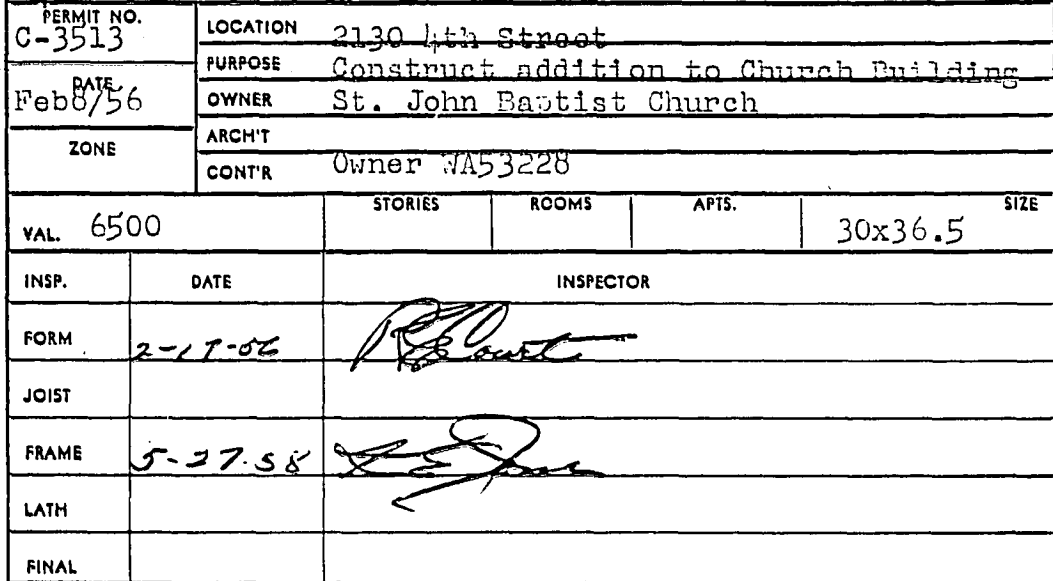 PERMIT NO.
C-3513
LOCATION 2130 4th Street
PURPOSE Construct addition to Church Building
DATE
Feb8/56
OWNER St. John Baptist Church
ZONE
ARCH'T
CONT'R Owner WA53228
VAL. 6500 STORIES ROOMS APTS. SIZE 30x36.5
INSP. DATE INSPECTOR
FORM
JOIST
FRAME 5-27-58
LATH
FINAL